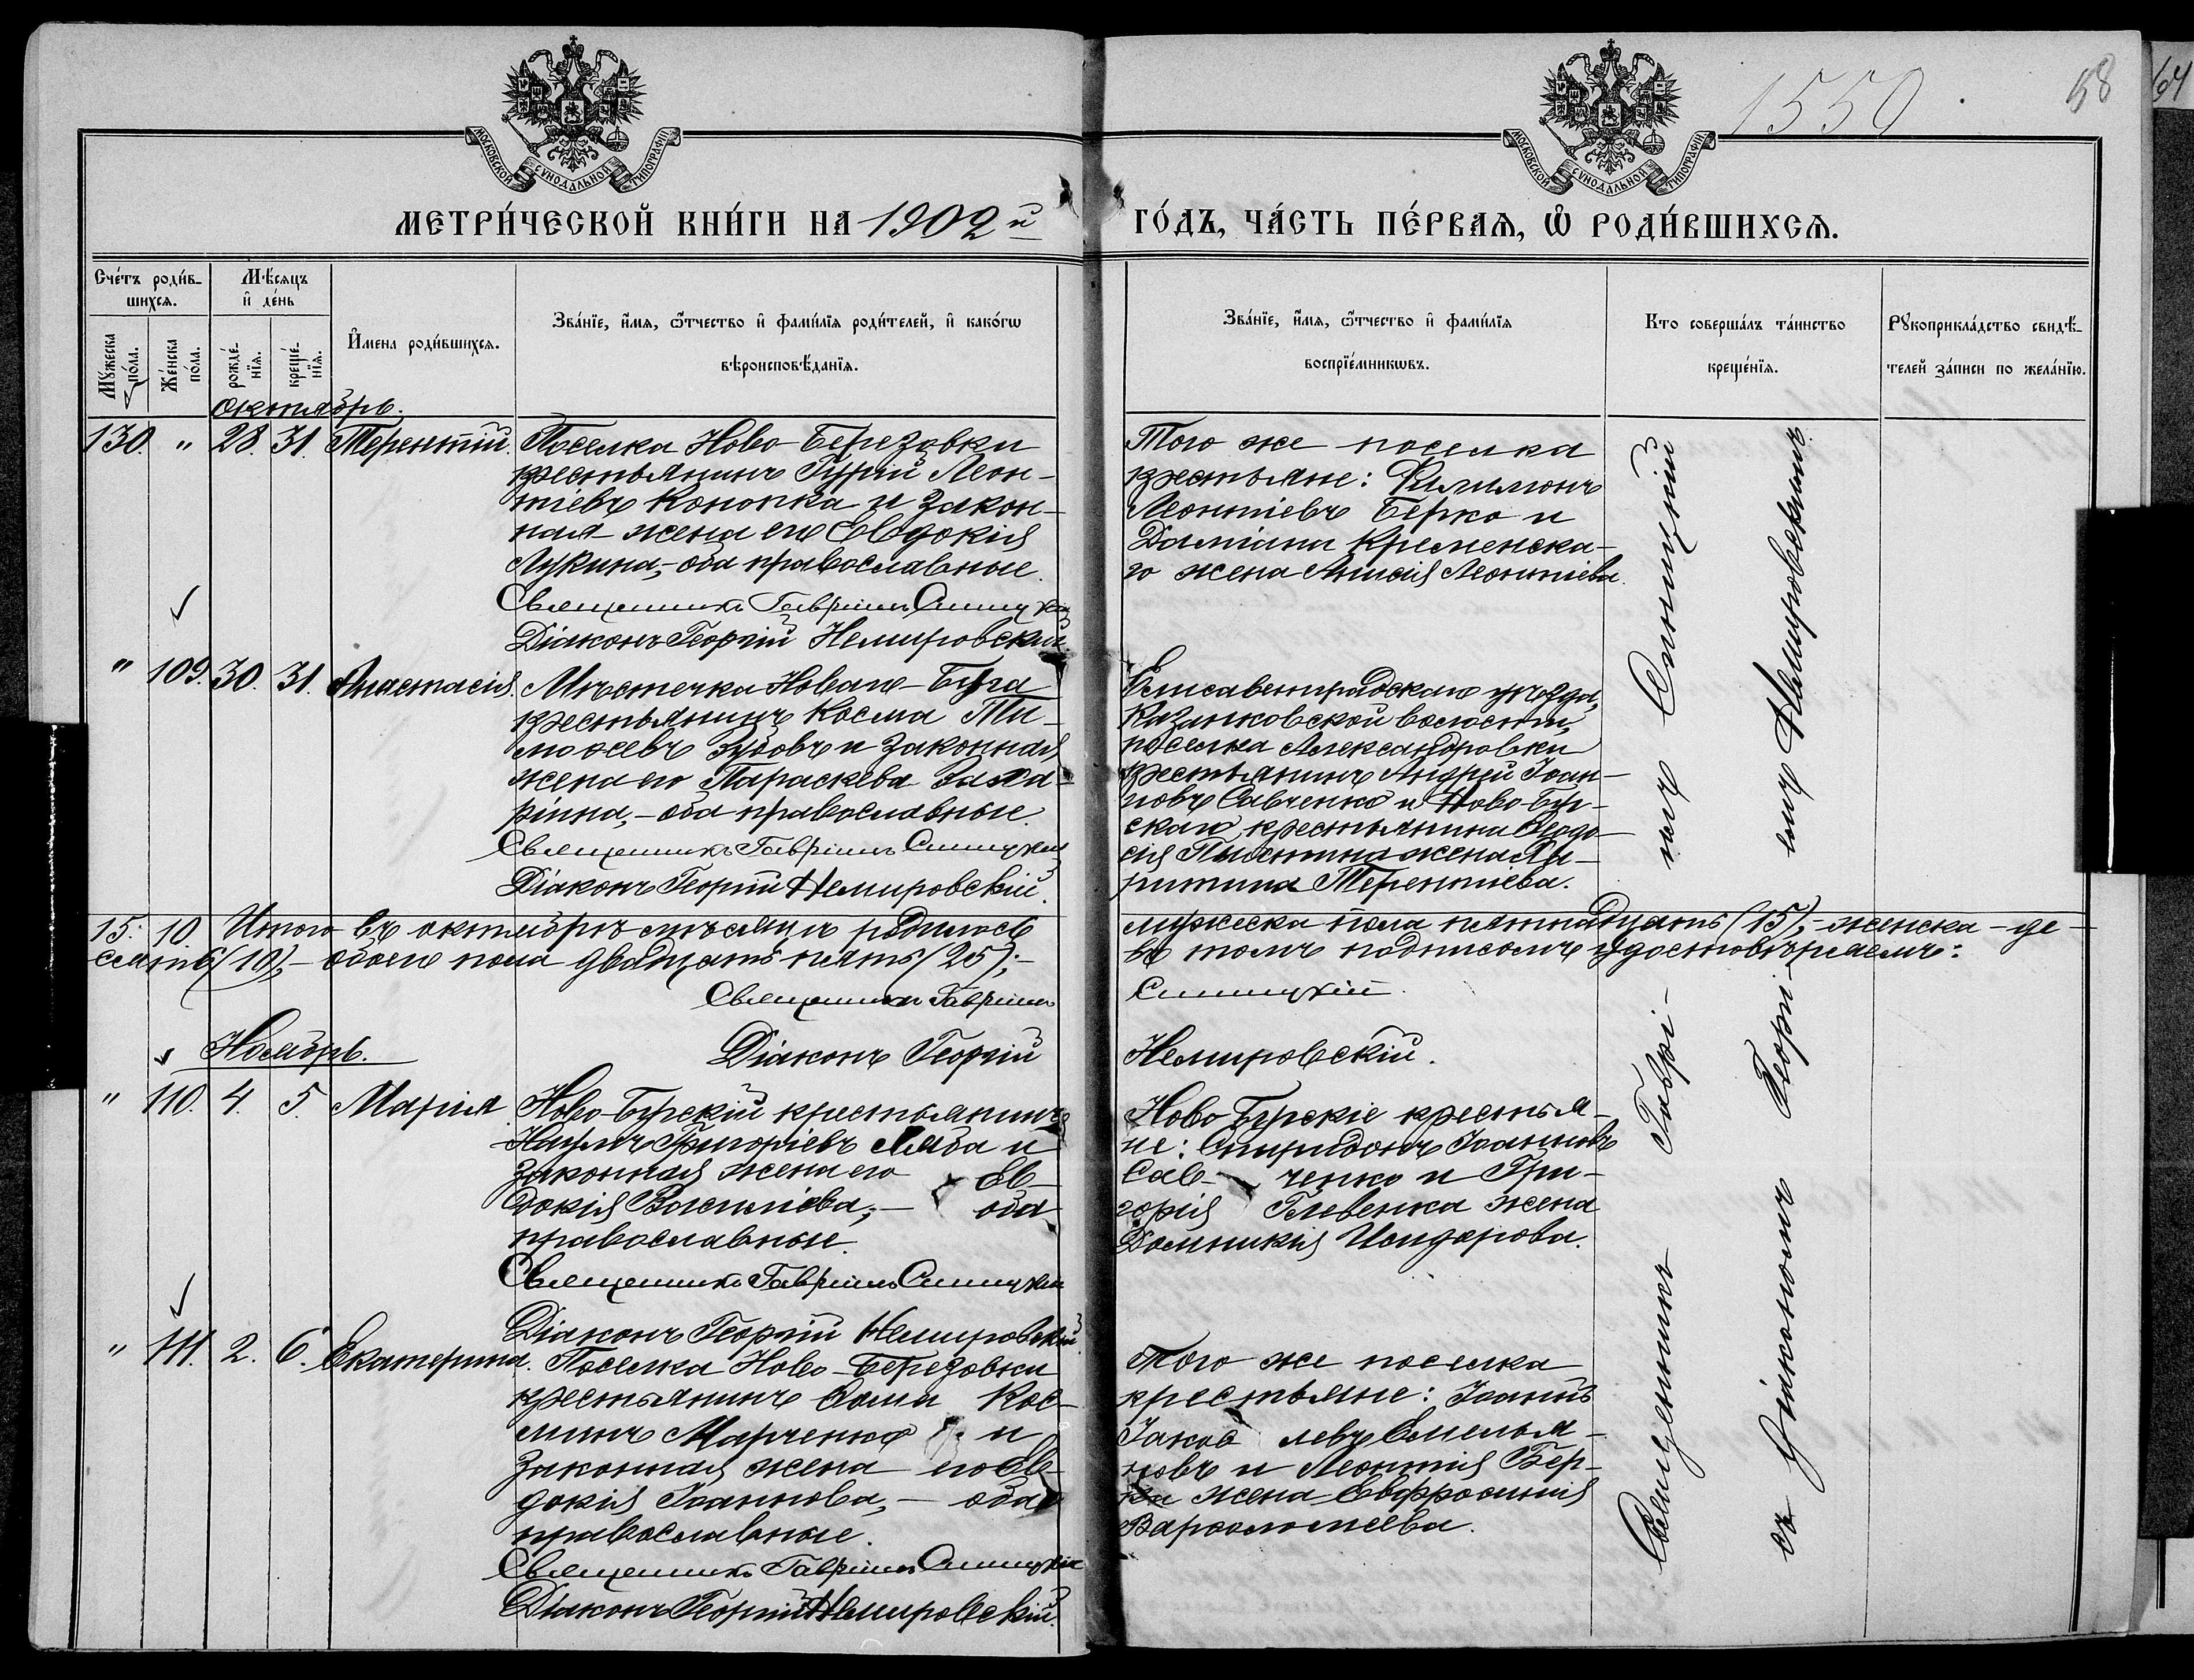 1550
58
64
МОСКОВСКОЙ СѴНОДАЛЬНОЙ ТИПОГРАФІИ
МОСКОВСКОЙ СѴНОДАЛЬНОЙ ТИПОГРАФІИ
МЕТРИ́ЧЕСКОЙ КНИ́ГИ НА 1902 й
ГО́ДЪ, ЧА́СТЬ ПЕ́РВАѦ, Ѡ҆ РОДИ́ВШИХСѦ.
Сче́тъ роди́в-
шихсѧ.
Мꙋ́жеска по́ла.
Же́нска по́ла.
Мѣ́сѧцъ
и҆ де́нь
рожде́-
нїѧ.
креще́-
нїѧ.
И҆мена роди́вшихсѧ.
Зва́нїе, и҆́мѧ, ѻ҆́тчество и҆ фамѝлїѧ роди́телей, и҆ како́гѡ
вѣроисповѣ́данїѧ.
Зва́нїе, и҆́мѧ, ѻ҆́тчество и҆ фамѝлїѧ
воспрїе́мникѡвъ.
Кто соверша́лъ та́инство
креще́нїѧ.
Рꙋкоприкла́дство свидѣ́-
телей за́писи по жела́нїю.
Октябрь.
130. " 28. 31. Терентій. Поселка Ново-Березовки
крестьянинъ Гурій Леон-
тіевъ Конопка и закон-
ная жена его Евдокія
Лукина,- оба православные.
Священникъ Гавріилъ Синицкій
Діаконъ Георгій Немировскій.
Того же поселка
крестьяне: Филимонъ
Леонтіевъ Берко и
Даміана Кременска-
го жена Анисія Леонтіева.
" 109. 30. 31. Анастасія. Мѣстечка Новаго-Буга
крестьянинъ Косма Ти-
моѳеевъ Зубовъ и законная
жена его Параскева Заха-
ріина,- оба православные.
Священникъ Гавріилъ Синицкій
Діаконъ Георгій Немировскій.
Елисаветградскаго уѣзда,
Казанковской волости,
поселка Александровки
крестьянинъ Андрей Іоан-
новъ Савченко и Ново-Буг-
скаго крестьянина Ѳеодо-
сія жена Ха-
ритина Терентіева.
15. 10. Итого въ октябрѣ мѣсяцѣ родилось
мужеска пола пятнадцать (15),- женска - де-
сять (10),- обоего пола двадцать пять (25);-
въ томъ подписомъ удостовѣряемъ:
Священникъ Гавріилъ
Синицкій.
Діаконъ Георгій
Немировскій.
Ноябрь.
" 110. 4. 5. Марія. Ново-Бугскій крестьянинъ
Наумъ Григоріевъ Ляба и
законная жена его Ев-
докія Васильева,- оба
православные.
Священникъ Гавріилъ Синицкій
Діаконъ Георгій Немировскій.
Ново-Бугскіе крестья-
не: Спиридонъ Іоанновъ
Сав-ченко и Гри-
горія жена
Домникія Исидорова.
" 111. 2. 6. Екатерина. Поселка Ново-Березовки
крестьянинъ Ѳома Кос-
минъ Марченко и
законная жена его Ев-
докія Іоаннова,- оба
православные.
Священникъ Гавріилъ Синицкій
Діаконъ Георгій Немировскій.
Того же поселка
крестьяне: Іоаннъ
Іаковлевъ Емелья-
новъ и Леонтія Бер-
ка жена Евфросинія
Варѳоломеева.
Священникъ Гаврі-илъ Синицкій
съ діакономъ Георгі-емъ Немировскимъ.